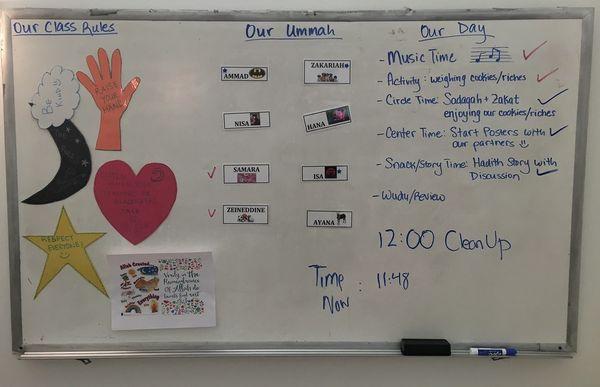 Our Class Rules
Be
Kind
RAISE
YOUR
HAND
RESPECT
EVERYONE!
Allah Created
Everything
Verily, in the
Remembrance
Of Allah do
hearts find rest
Our Ummah
AMMAD
ZAKARIAH
NISA
HANA
SAMARA
ISA
ZEINEDDINE
AYANA
Our Day
- Music Time
- Activity: weighing cookies/riches
- Circle Time: Sadaqah + Zakat
enjoying our cookies/riches
- Center Time: Start Posters with
our partners
- Snack/Story Time: Hadith Story with
Discussion
- Wudu/Review
12:00 Clean Up
Time
Now : 11:48
EXPO